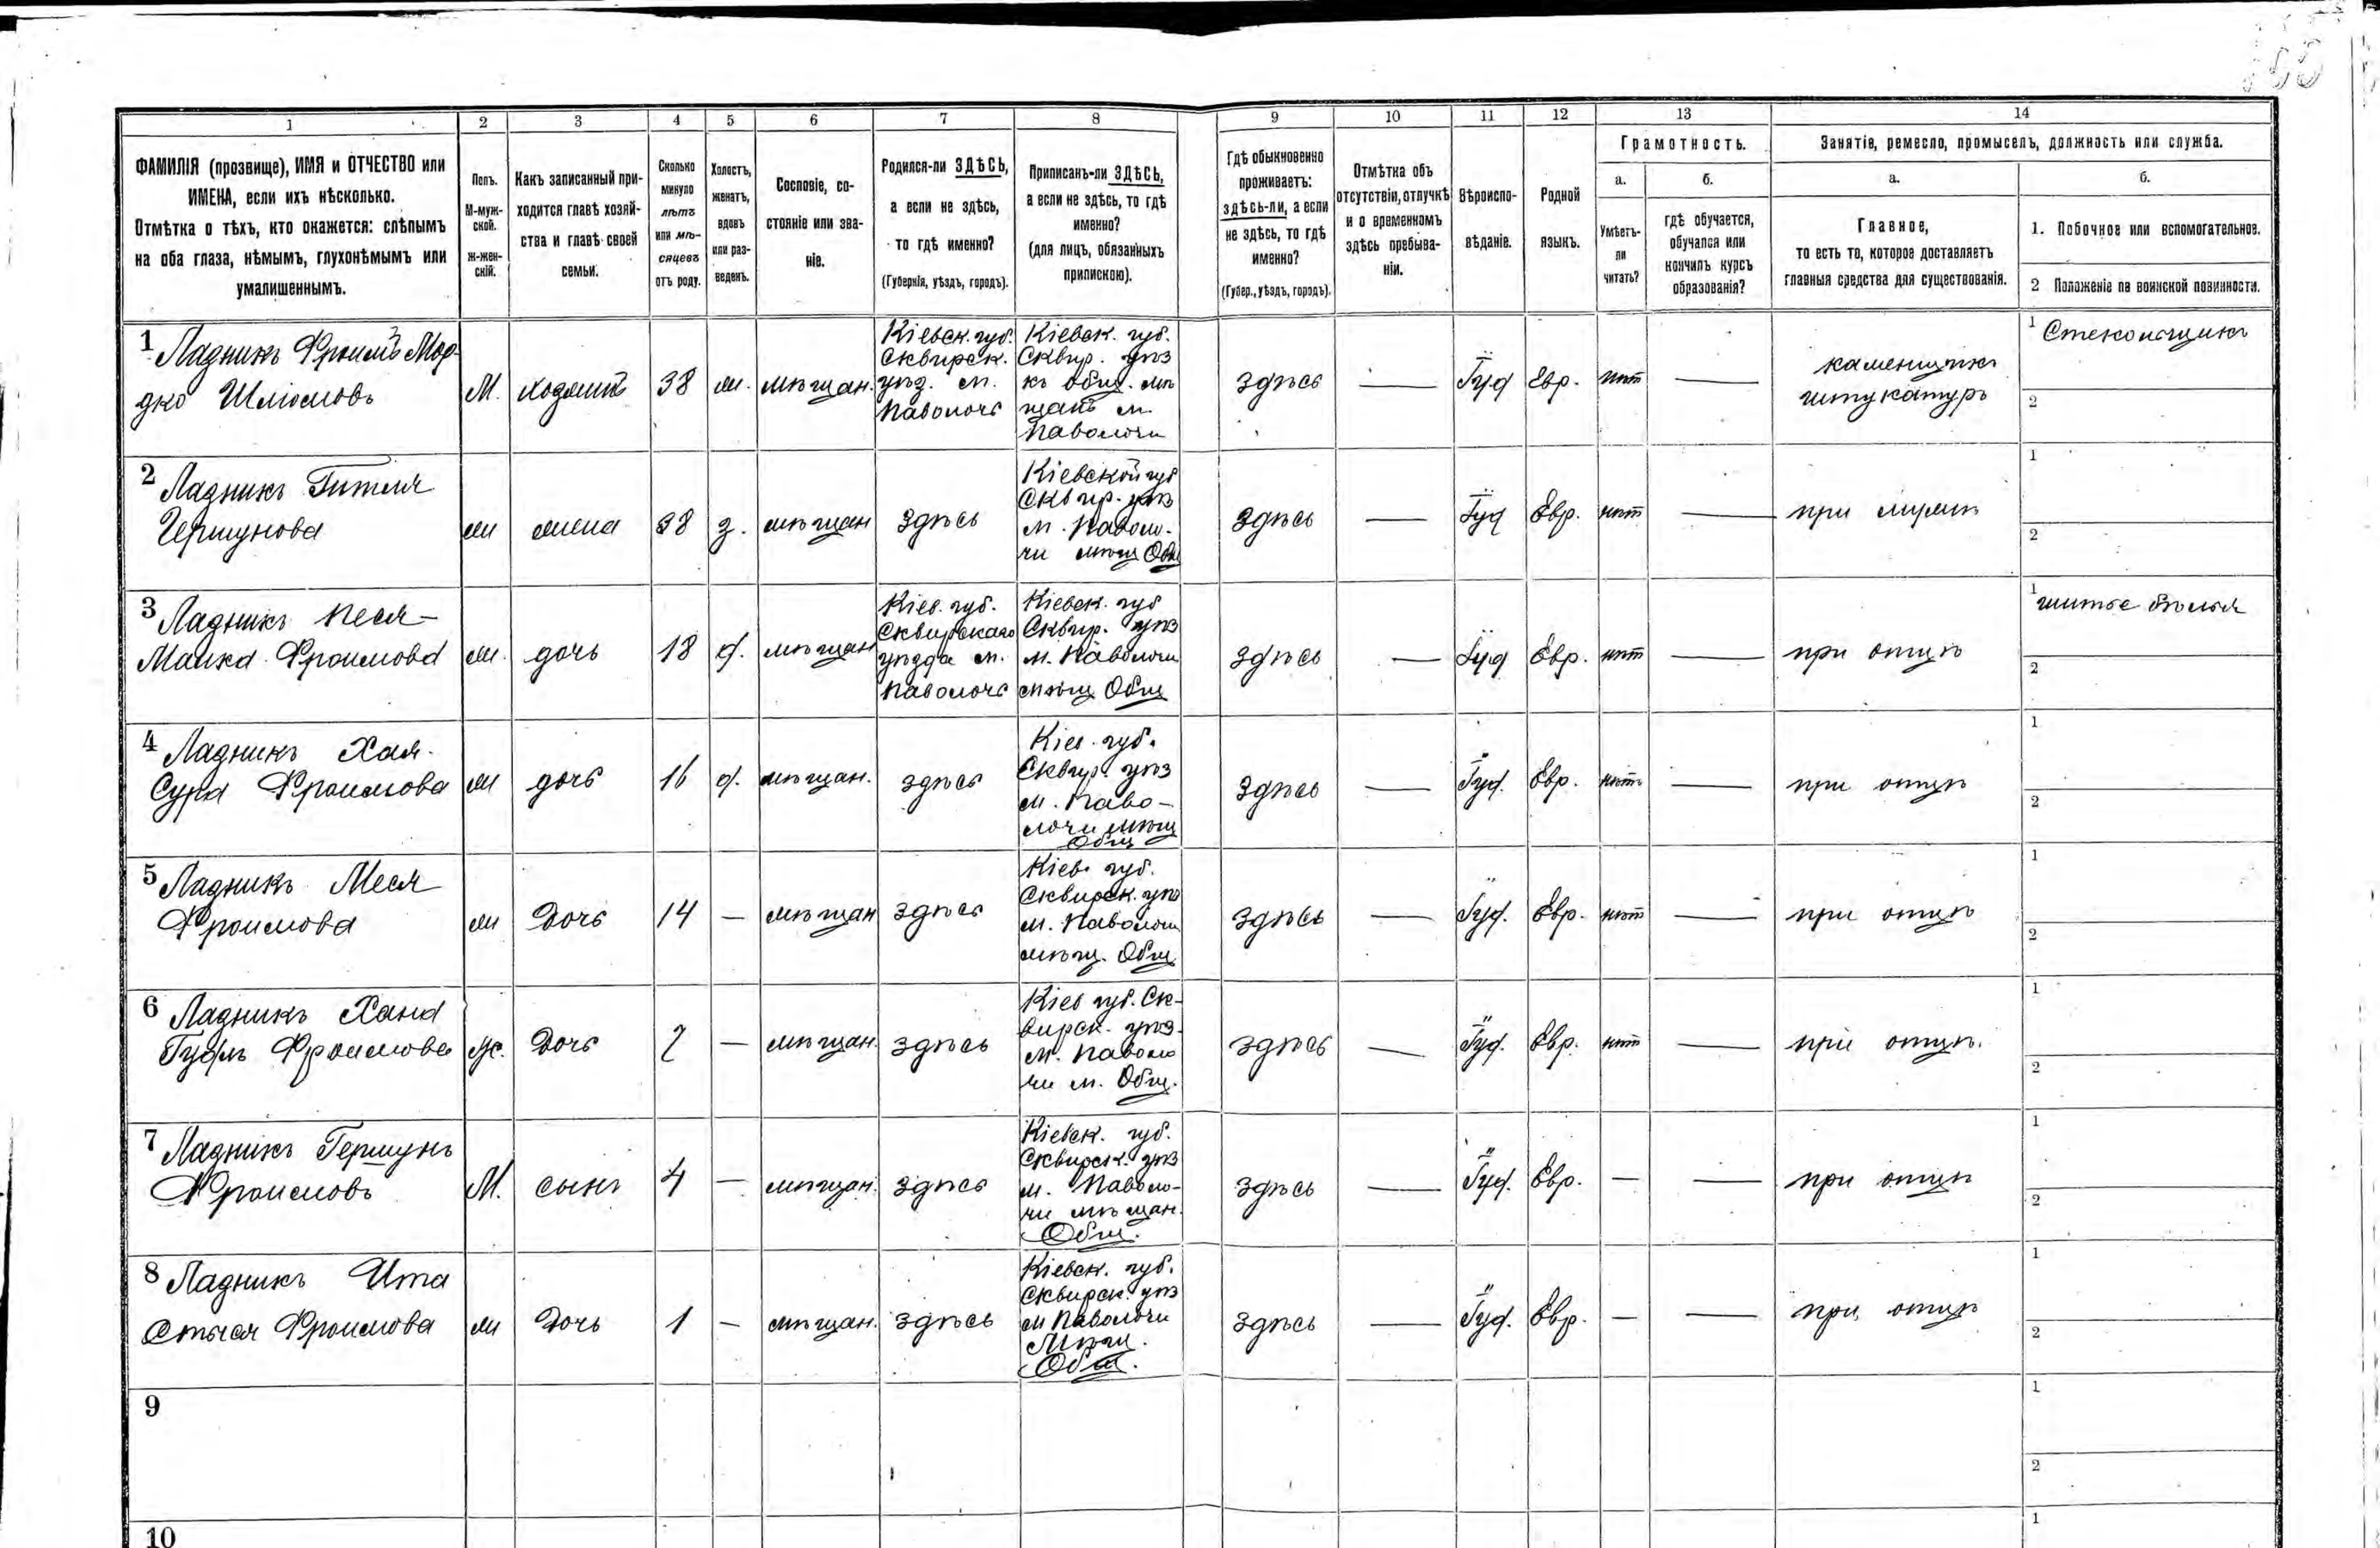 1 2 3 4 5 6 7 8 9 10 11 12 13 14
ФАМИЛІЯ (прозвище), ИМЯ и ОТЧЕСТВО или
ИМЕНА, если ихъ нѣсколько.
Отмѣтка о тѣхъ, кто окажется: слѣпымъ
на оба глаза, нѣмымъ, глухонѣмымъ или
умалишеннымъ.
Полъ.
М-муж-
ской.
ж-жен-
скій.
Какъ записанный при-
ходится главѣ хозяй-
ства и главѣ своей
семьи.
Сколько
минуло
лѣтъ
или мѣ-
сяцевъ
отъ роду.
Холостъ,
женатъ,
вдовъ
или раз-
веденъ.
Сословіе, со-
стояніе или зва-
ніе.
Родился-ли ЗДѢСЬ,
а если не здѣсь,
то гдѣ именно?
(Губернія, уѣздъ, городъ).
Приписанъ-ли ЗДѢСЬ,
а если не здѣсь, то гдѣ
именно?
(для лицъ, обязанныхъ
припискою).
Гдѣ обыкновенно
проживаетъ:
здѣсь-ли, а если
не здѣсь, то гдѣ
именно?
(Губер., уѣздъ, городъ).
Отмѣтка объ
отсутствіи, отлучкѣ
и о временномъ
здѣсь пребыва-
ніи.
Вѣроиспо-
вѣданіе.
Родной
языкъ.
Грамотность.
а.
Умѣетъ-
ли
читать?
б.
гдѣ обучается,
обучался или
кончилъ курсъ
образованія?
Занятіе, ремесло, промыселъ, должность или служба.
а.
Главное,
то есть то, которое доставляетъ
главныя средства для существованія.
б.
1. Побочное или вспомогательное.
2 Положеніе по воинской повинности.
1 Ладникъ Фроимъ Мор-
дко Шліомовъ
М.
38
мѣщан.
Кіевск. губ.
Сквирск.
уѣз. м.
Паволочь
Кіевск. губ.
Сквир. уѣз
къ общ. мѣ
щанъ м.
Паволочи
здѣсь
—
Іуд
Евр.
нѣт
—
каменщикъ
штукатуръ
1 Стекольщикъ
2
2 Ладникъ Гитля
Гершунова
ж
жена
38
з.
мѣщан
здѣсь
Кіевской губ
Сквир. уѣз
м. Паволо-
чи мѣщ Общ
здѣсь
—
Іуд
Евр.
нѣт
—
при мужѣ
1
2
3 Ладникъ Песя-
Малка Фроимова
ж.
дочь
18
д.
мѣщан
Кіев. губ.
Сквирскаго
уѣзда м.
Паволочь
Кіевск. губ
Сквир. уѣз
м. Паволочи
мѣщ Общ
здѣсь
—
Іуд
Евр.
нѣт
—
при отцѣ
1 шитье бѣлья
2
4 Ладникъ Хая-
Сура Фроимова
ж
дочь
16
д.
мѣщан.
здѣсь
Кіев. губ.
Сквир. уѣз
м. Паво-
лочи мѣщ
Общ
здѣсь
—
Іуд.
Евр.
нѣтъ
—
при отцѣ
1
2
5 Ладникъ Меся
Фроимова
ж
Дочь
14
—
мѣщан
здѣсь
Кіев. губ.
Сквирск. уѣз
м. Паволочи
мѣщ. Общ
здѣсь
—
Іуд.
Евр.
нѣт
—
при отцѣ
1
2
6 Ладникъ Хана
Фроимова
ж.
Дочь
—
мѣщан.
здѣсь
Кіев губ. Ск-
вирск. уѣз.
м. Паволо
чи м. Общ.
здѣсь
—
Іуд.
Евр.
нѣт
—
при отцѣ.
1
2
7 Ладникъ Гершунъ
Фроимовъ
М.
сынъ
4
—
мѣщан.
здѣсь
Кіевск. губ.
Сквирск. уѣз
м. Паволо-
чи мѣщан.
Общ.
здѣсь
—
Іуд.
Евр.
—
—
при отцѣ
1
2
8 Ладникъ Ита
Фроимова
ж
Дочь
1
—
мѣщан.
здѣсь
Кіевск. губ.
Сквирск. уѣз
м Паволочи
Мѣщ.
Общ.
здѣсь
—
Іуд.
Евр.
—
—
при отцѣ
1
2
9
1
2
10
1